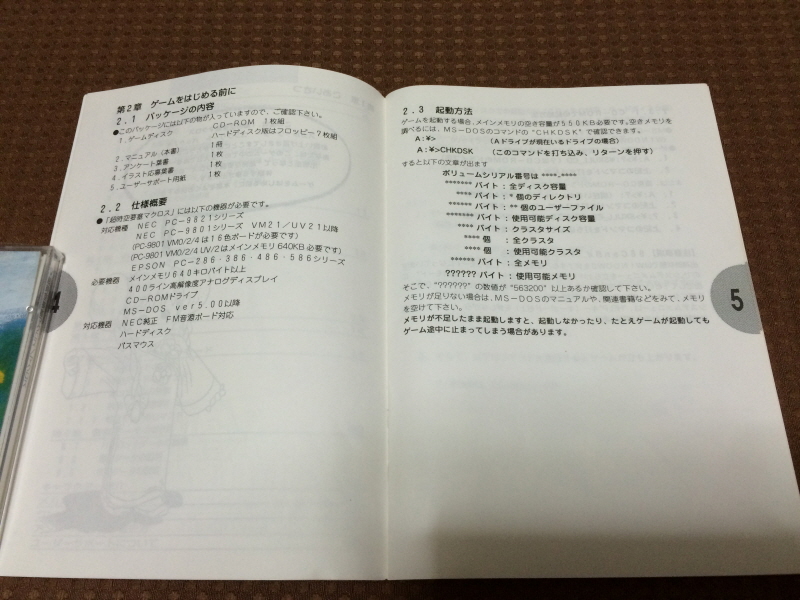 第2章 ゲームをはじめる前に
2.1 パッケージの内容
●このパッケージには以下の物が入っていますので、ご確認下さい。
1.ゲームディスク CD-ROM 1枚組
ハードディスク版はフロッピー7枚組
2.マニュアル(本書) 1冊
3.アンケート葉書 1枚
4.イラスト応募葉書 1枚
5.ユーザーサポート用紙 1枚
2.2 仕様概要
●「超時空要塞マクロス」には以下の機器が必要です。
対応機種 NEC PC-9821シリーズ
NEC PC-9801シリーズ VM21/UV21以降
(PC-9801VM0/2/4は16色ボードが必要です)
(PC-9801VM0/2/4 UV/2はメインメモリ640KB必要です)
EPSON PC-286・386・486・586シリーズ
必要機器 メインメモリ640キロバイト以上
400ライン高解像度アナログディスプレイ
CD-ROMドライブ
MS-DOS ver5.00以降
対応機器 NEC純正 FM音源ボード対応
ハードディスク
バスマウス
4
2.3 起動方法
ゲームを起動する場合、メインメモリの空き容量が550KB必要です。空きメモリを
調べるには、MS-DOSのコマンドの"CHKDSK"で確認できます。
A:¥> (Aドライブが現在いるドライブの場合)
A:¥>CHKDSK (このコマンドを打ち込み、リターンを押す)
すると以下の文章が出ます
ボリュームシリアル番号は ****-****
******* バイト : 全ディスク容量
**** バイト : * 個のディレクトリ
****** バイト : ** 個のユーザーファイル
******* バイト : 使用可能ディスク容量
**** バイト : クラスタサイズ
**** 個 : 全クラスタ
**** 個 : 使用可能クラスタ
****** バイト : 全メモリ
?????? バイト : 使用可能メモリ
そこで、"??????" の数値が "563200" 以上あるか確認して下さい。
メモリが足りない場合は、MS-DOSのマニュアルや、関連書籍などをみて、メモリ
を空けて下さい。
メモリが不足したまま起動しますと、起動しなかったり、たとえゲームが起動しても
ゲーム途中に止まってしまう場合があります。
5